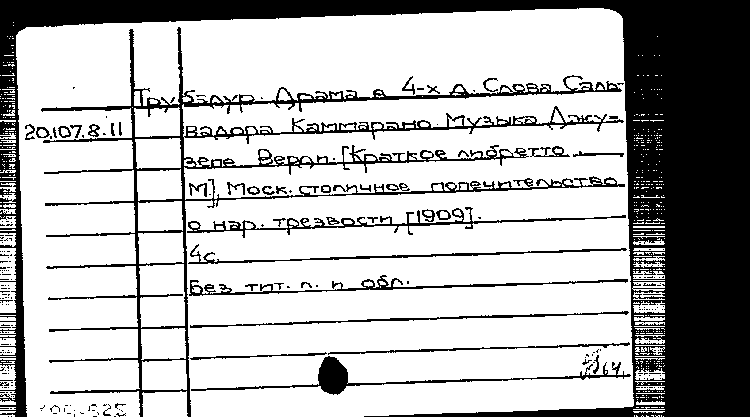 Трубадур. Драма в 4-х д. Слова Саль-
20.107.8.11 вадора Каммарано Музыка Джу-
зепе Верди. [Краткое либретто.
М], Моск. столичное попечительство
о нар. трезвости, [1909].
4с.
Без тит. л. и обл.